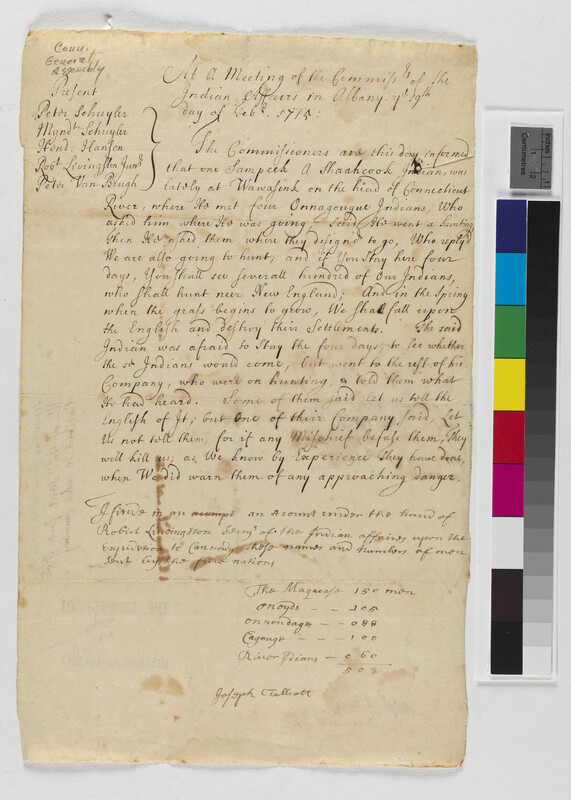 Conn.
General
Assembly
At A Meeting of the Commissrs of the
Indian Affairs in Albany ye 19th
day of Feb. 1715:
Present
Peter Schuyler
Myndt Schuyler
Hend: Hansen
Robt Livingston Junr
Peter Van Brugh
The Commissioners are this day informed
that one Sampeek A Skaahcook Indian, was
lately at Wawasink on the head of Connecticut
River, where He met four Onnagouque Indians, Who
asked him where He was going. Said He went a hunting
then He asked them where they designd to go, Who reply'd
We are also going to hunt; and if You stay here four
days, You shall see severall hundred of Our Indians,
who shall hunt neer New England; And in the Spring
when the grass begins to grow, We shall fall upon
the English and destroy their Settlements. The said
Indian was afraid to stay the four days, to see whether
the sd Indians would come, but went to the rest of his
Company, who were on hunting, & told them what
He had heard. Some of them said let us tell the
English of It; but One of their Company said, Let
Us not tell them, for if any Mischief befall them, They
will kill us, as We know by Experience they have done,
when We did warn them of any approaching danger.
I finde in an acompt an acount under the hand of
Robert Livingston Secry of the Indian affaires upon the
Expedition to Cannady these names and numbers of men
sent by the five nations
The Maquase 150 men
onoyds - - 105
onnondages - - 088
Cayouge - - - 100
River Indians - 060
503
Joseph Tallcott